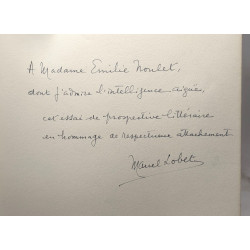 A Madame Emilie Noulet,
dont j'admire l'intelligence aiguë,
cet essai de prospective littéraire
en hommage de respectueux attachement
Marcel Lobet